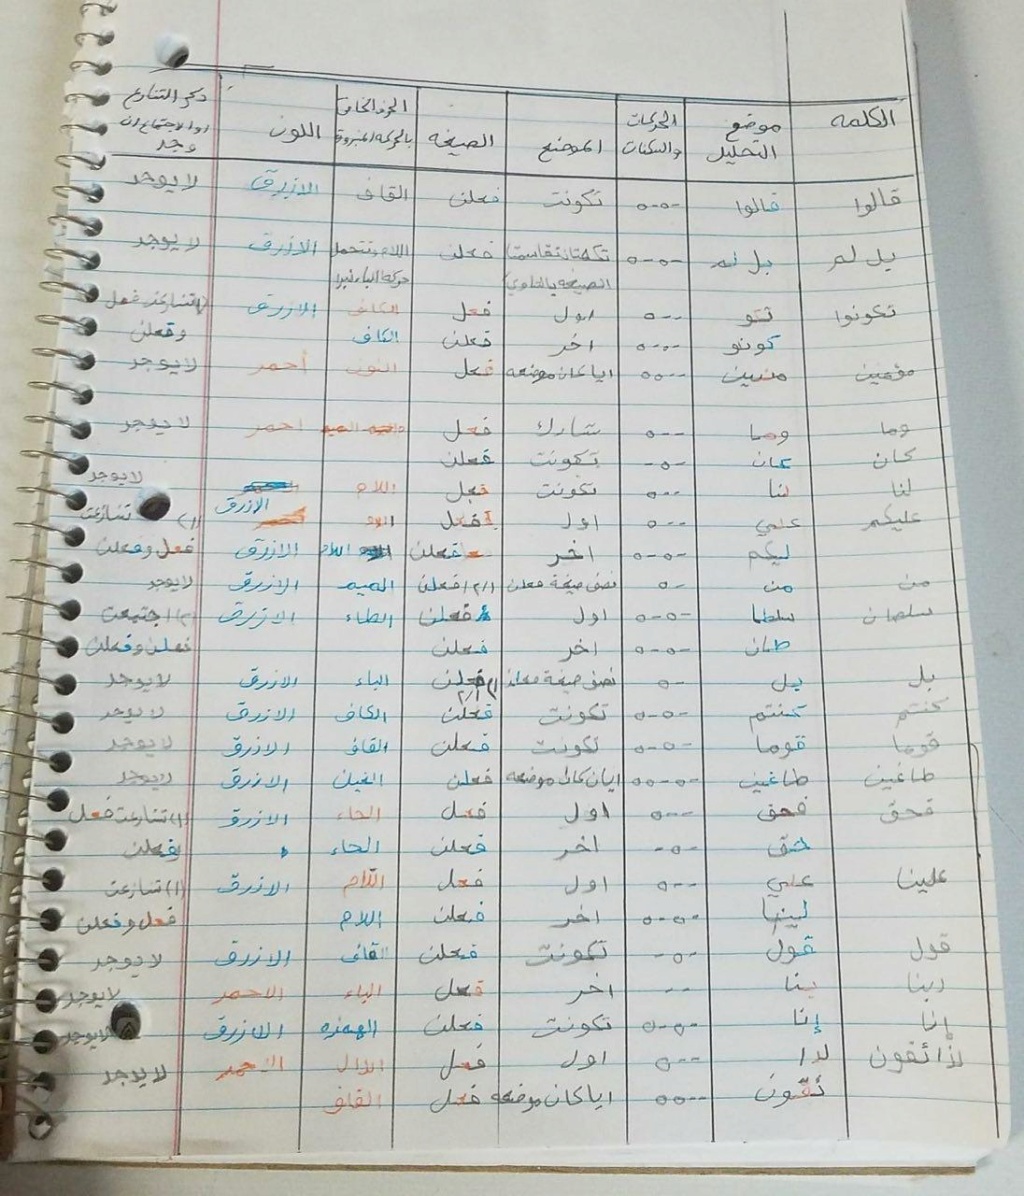 الكلمه موضع التحليل الحركات والسكنات الموضع الصيغه الحرف الخاص بالحركه المنبورة اللون ذكر التنازع او الاجتماع ان وجد
قالوا قالوا -o-o تكونت فعلن القاف الازرق لا يوجد
بل لم بل لم -o-o الصيغه بالتساوي فعلن اللام وتتحمل حركه الباء نبرا الازرق لا يوجد
تكونوا تكو --o اول فعل الكاف الازرق (١) تنازعت فعل
كونو -o-o اخر فعلن الكاف وفعلن
مؤمنين منين --oo ايا كان موضعه فعل النون أحمر لا يوجد
وما وما --o شارك فعل الميم احمر لا يوجد
كان كان -o- تكونت فعلن
لنا لنا --o تكونت فعل اللام لا يوجد
عليكم علي --o اول فعل الازرق (١) تنازعت
ليكم -o-o اخر فعلن اللام الازرق فعل وفعلن
من من -o نصف صيغة فعلن ١/٢ فعلن الميم الازرق لا يوجد
سلطان سلطا -o-o اول فعلن الطاء الازرق اجتمعت
طان -o-o اخر فعلن فعلن وفعلن
بل بل -o نصف صيغة فعلن ١/٢ فعلن الباء الازرق لا يوجد
كنتم كنتم -o-o تكونت فعلن الكاف الازرق لا يوجد
قوما قوما -o-o تكونت فعلن القاف الازرق لا يوجد
طاغين طاغين -o-oo ايان كان موضعه فعلن الغين الازرق لا يوجد
فحق فحق --o اول فعل الحاء الازرق (١) تنازعت فعل
حق -o- اخر فعلن الحاء وفعلن
علينا علي --o اول فعل اللام الازرق (١) تنازعت
لينا -o-o اخر فعلن اللام فعل وفعلن
قول قول -o- تكونت فعلن القاف الازرق لا يوجد
ربنا بنا -- اخر فعل الباء الاحمر لا يوجد
إنا إنا -o-o تكونت فعلن الهمزه الازرق لا يوجد
لذائقون لذا --o اول فعل الذال الاحمر لا يوجد
ئقون --oo ايا كان موضعه فعل القاف